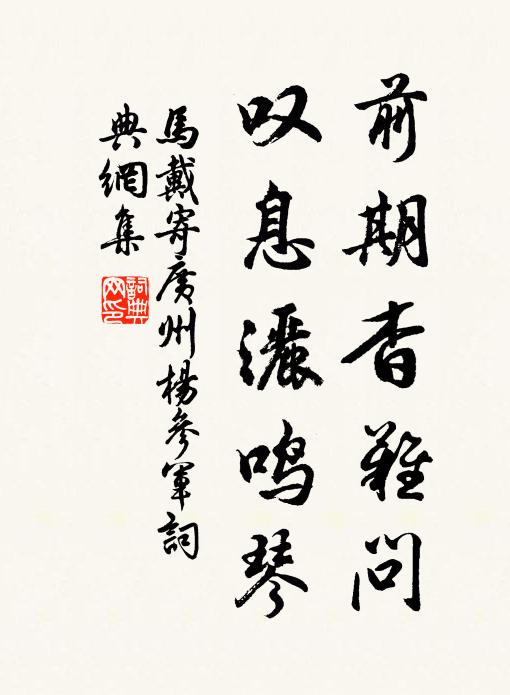 前期杳難問
叹息灑鳴琴
馬戴寄廣州楊參軍詞
典網集
詞典
网印